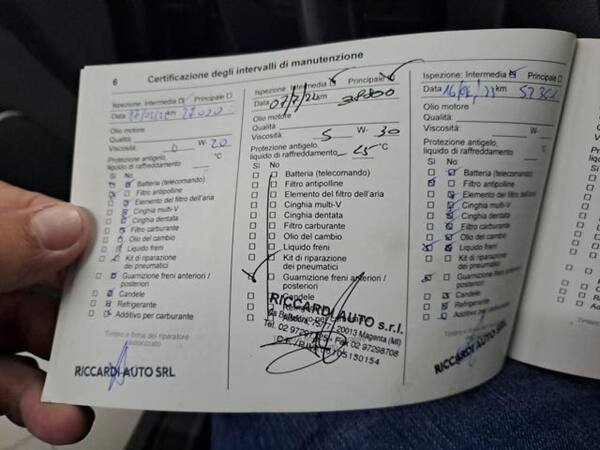 6 Certificazione degli intervalli di manutenzione
Ispezione: Intermedia Principale
Data km 27020
Olio motore
Qualità
Viscosità 0 W- 20
Protezione antigelo,
liquido di raffreddamento °C
Sì No
Batteria (telecomando)
Filtro antipolline
Elemento del filtro dell'aria
Cinghia multi-V
Cinghia dentata
Filtro carburante
Olio del cambio
Liquido freni
Kit di riparazione
dei pneumatici
Guarnizione freni anteriori /
posteriori
Candele
Refrigerante
Additivo per carburante
Timbro e firma del riparatore
autorizzato
RICCARDI AUTO SRL
Ispezione: Intermedia Principale
Data 07/7/21 km
Olio motore
Qualità
Viscosità 5 W- 30
Protezione antigelo,
liquido di raffreddamento -25 °C
Sì No
Batteria (telecomando)
Filtro antipolline
Elemento del filtro dell'aria
Cinghia multi-V
Cinghia dentata
Filtro carburante
Olio del cambio
Liquido freni
Kit di riparazione
dei pneumatici
Guarnizione freni anteriori /
posteriori
Candele
RICCARDI AUTO s.r.l.
20013 Magenta (MI)
Tel. 02 Fax 02 97298708
Ispezione: Intermedia Principale
Data km
Olio motore
Qualità
Viscosità W-
Protezione antigelo,
liquido di raffreddamento °C
Sì No
Batteria (telecomando)
Filtro antipolline
Elemento del filtro dell'aria
Cinghia multi-V
Cinghia dentata
Filtro carburante
Olio del cambio
Liquido freni
Kit di riparazione
dei pneumatici
Guarnizione freni anteriori /
posteriori
Candele
Refrigerante
Additivo per carburante
Timbro e firma del riparatore
autorizzato
RICCARDI AUTO SRL